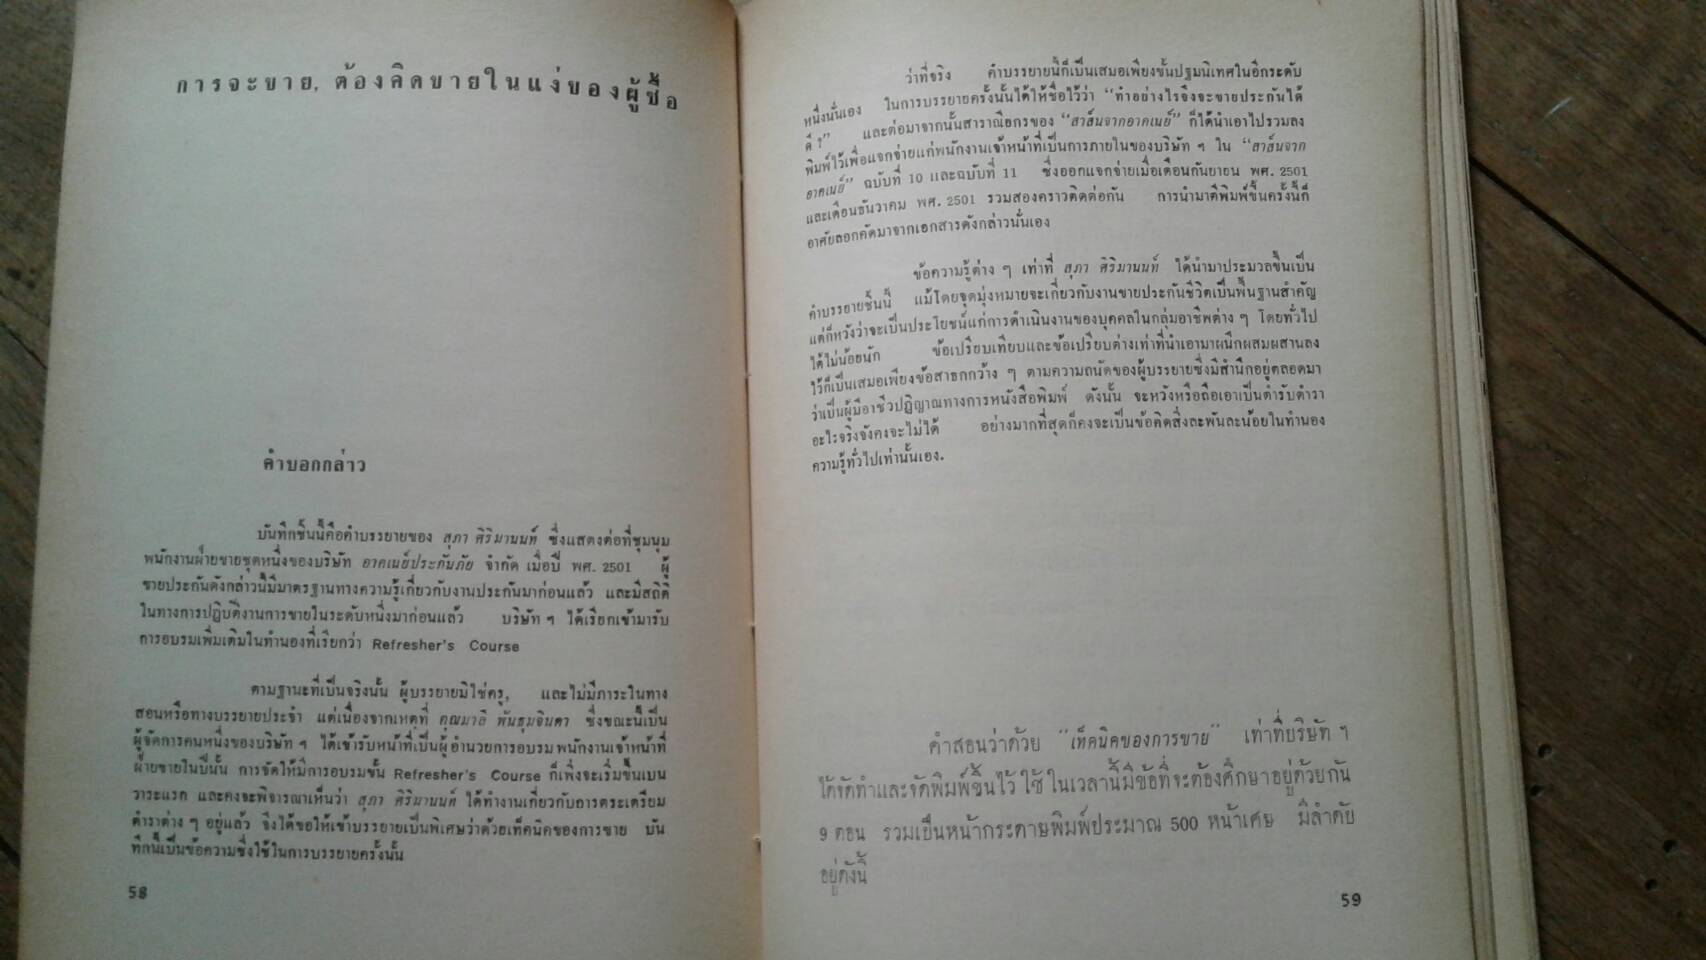 การจะขาย, ต้องคิดขายในแง่ของผู้ซื้อ
คำบอกกล่าว
บันทึกชิ้นนี้คือคำบรรยายของ สุภา ศิริมานนท์ ซึ่งแสดงต่อที่ชุมนุม
พนักงานฝ่ายขายชุดหนึ่งของบริษัท อาคเนย์ประกันภัย จำกัด เมื่อปี พศ. 2501 ผู้
ขายประกันดังกล่าวนี้มีมาตรฐานทางความรู้เกี่ยวกับงานประกันมาก่อนแล้ว และมีสถิติ
ในทางการปฏิบัติงานการขายในระดับหนึ่งมาก่อนแล้ว บริษัท ฯ ได้เรียกเข้ามารับ
การอบรมเพิ่มเติมในทำนองที่เรียกว่า Refresher's Course
ตามฐานะที่เป็นจริงนั้น ผู้บรรยายมิใช่ครู, และไม่มีภาระในทาง
สอนหรือทางบรรยายประจำ แต่เนื่องจากเหตุที่ คุณมาลี พันธุมจินดา ซึ่งขณะนี้เป็น
ผู้จัดการคนหนึ่งของบริษัท ฯ ได้เข้ารับหน้าที่เป็นผู้อำนวยการอบรมพนักงานเจ้าหน้าที่
ฝ่ายขายในปีนั้น การจัดให้มีการอบรมขั้น Refresher's Course ก็เพิ่งจะเริ่มขึ้นเปน
วาระแรก และคงจะพิจารณาเห็นว่า สุภา ศิริมานนท์ ได้ทำงานเกี่ยวกับการตระเตรียม
ตำราต่าง ๆ อยู่แล้ว จึงได้ขอให้เข้าบรรยายเป็นพิเศษว่าด้วยเท็คนิคของการขาย บัน
ทึกนี้เป็นข้อความซึ่งใช้ในการบรรยายครั้งนั้น
58
ว่าที่จริง คำบรรยายนี้ก็เป็นเสมอเพียงขั้นปฐมนิเทศในอีกระดับ
หนึ่งนั่นเอง ในการบรรยายครั้งนั้นได้ให้ชื่อไว้ว่า "ทำอย่างไรจึงจะขายประกันได้
ดี ?" และต่อมาจากนั้นสาราณียกรของ "สาส์นจากอาคเนย์" ก็ได้นำเอาไปรวมลง
พิมพ์ไว้เพื่อแจกจ่ายแก่พนักงานเจ้าหน้าที่เป็นการภายในของบริษัท ฯ ใน "สาส์นจาก
อาคเนย์" ฉบับที่ 10 และฉบับที่ 11 ซึ่งออกแจกจ่ายเมื่อเดือนกันยายน พศ. 2501
และเดือนธันวาคม พศ. 2501 รวมสองคราวติดต่อกัน การนำมาตีพิมพ์ขึ้นครั้งนี้ก็
อาศัยลอกคัดมาจากเอกสารดังกล่าวนั่นเอง
ข้อความรู้ต่าง ๆ เท่าที่ สุภา ศิริมานนท์ ได้นำมาประมวลขึ้นเป็น
คำบรรยายชิ้นนี้ แม้โดยจุดมุ่งหมายจะเกี่ยวกับงานขายประกันชีวิตเป็นพื้นฐานสำคัญ
แต่ก็หวังว่าจะเป็นประโยชน์แก่การดำเนินงานของบุคคลในกลุ่มอาชีพต่าง ๆ โดยทั่วไป
ได้ไม่น้อยนัก ข้อเปรียบเทียบและข้อเปรียบต่างเท่าที่นำเอามาผนึกผสมผสานลง
ไว้ก็เป็นเสมอเพียงข้อสาธกกว้าง ๆ ตามความถนัดของผู้บรรยายซึ่งมีสำนึกอยู่ตลอดมา
ว่าเป็นผู้มีอาชีวปฏิญาณทางการหนังสือพิมพ์ ดังนั้น จะหวังหรือถือเอาเป็นตำรับตำรา
อะไรจริงจังคงจะไม่ได้ อย่างมากที่สุดก็คงจะเป็นข้อคิดสิ่งละพันละน้อยในทำนอง
ความรู้ทั่วไปเท่านั้นเอง.
คำสอนว่าด้วย "เท็คนิคของการขาย" เท่าที่บริษัท ฯ
ได้จัดทำและจัดพิมพ์ขึ้นไว้ใช้ในเวลานี้มีข้อที่จะต้องศึกษาอยู่ด้วยกัน
9 ตอน รวมเป็นหน้ากระดาษพิมพ์ประมาณ 500 หน้าเศษ มีลำดับ
อยู่ดังนี้
59